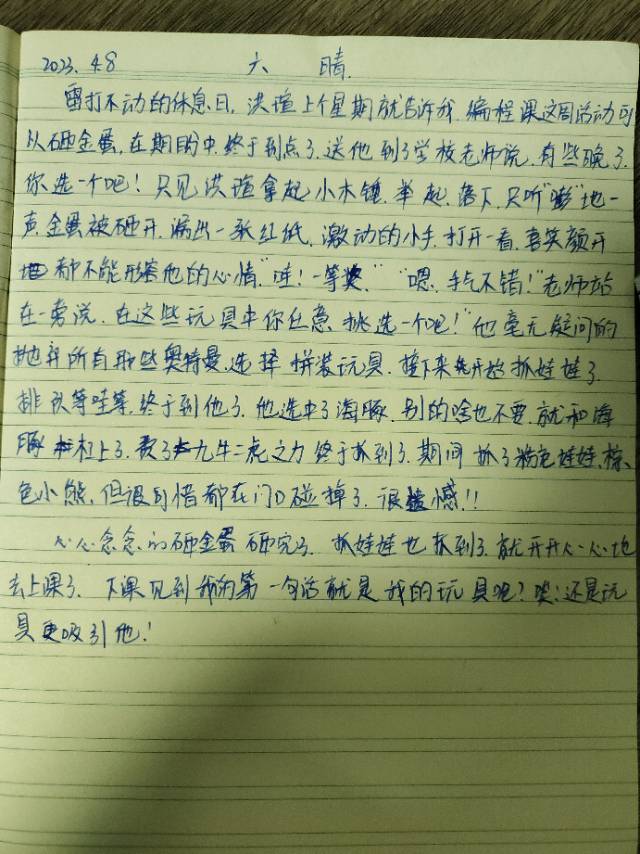 2023.4.8 六 晴.
雷打不动的休息日,洪瑄上个星期就告诉我,编程课这周活动可
以砸金蛋,在期盼中终于到点了.送他到了学校老师说,有些晚了.
你选一个吧!只见洪瑄拿起小木锤,举起,落下,只听"嘭"地一
声,金蛋被砸开,漏出一张红纸,激动的小手,打开一看,喜笑颜开
都不能形容他的心情."哇!一等奖.""嗯,手气不错!"老师站
在一旁说.在这些玩具中你任意挑选一个吧!"他毫无疑问的
抛弃所有那些奥特曼,选择拼装玩具.接下来开始抓娃娃了.
排队等哇等,终于到他了.他选中了海豚.别的啥也不要,就和海
豚杠上了.费了九牛二虎之力终于抓到了.期间抓了粉色娃娃,棕
色小熊,但很可惜都在门口碰掉了.很遗憾!!
心心念念的砸金蛋砸完了.抓娃娃也抓到了.就开开心心地
去上课了.下课见到我的第一句话就是我的玩具呢?唉!还是玩
具更吸引他!